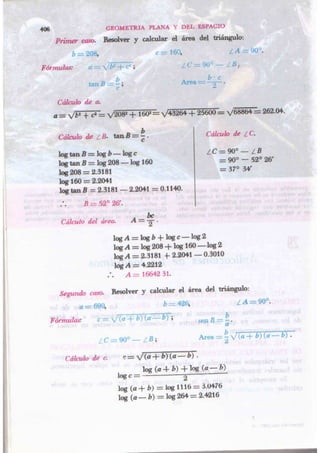 406 GEOMETRIA PLANA Y DEL ESPACIO
Primer caso. Resolver y calcular el área del triángulo:
b = 208, c = 160, ∠A = 90°.
Fórmulas: a = √b² + c² ; ∠C = 90° — ∠B,
tan B = b/c ; Area = b · c / 2 .
Cálculo de a.
a = √b² + c² = √208² + 160² = √43264 + 25600 = √68864 = 262.04.
Cálculo de ∠B. tan B = b/c .
log tan B = log b — log c
log tan B = log 208 — log 160
log 208 = 2.3181
log 160 = 2.2041
log tan B = 2.3181 — 2.2041 = 0.1140.
∴ B = 52° 26'.
Cálculo de ∠C.
∠C = 90° — ∠B
= 90° — 52° 26'
= 37° 34'
Cálculo del área. A = bc/2 .
log A = log b + log c — log 2
log A = log 208 + log 160 — log 2
log A = 2.3181 + 2.2041 — 0.3010
log A = 4.2212
∴ A = 16642 31.
Segundo caso. Resolver y calcular el área del triángulo:
a = 690, b = 426, ∠A = 90°.
Fórmulas: c = √(a + b) (a — b) ; sen B = b/a .
∠C = 90° — ∠B ; Area = b/2 √(a + b) (a — b) .
Cálculo de c. c = √(a + b) (a — b) .
log c = log (a + b) + log (a — b) / 2
log (a + b) = log 1116 = 3.0476
log (a — b) = log 264 = 2.4216